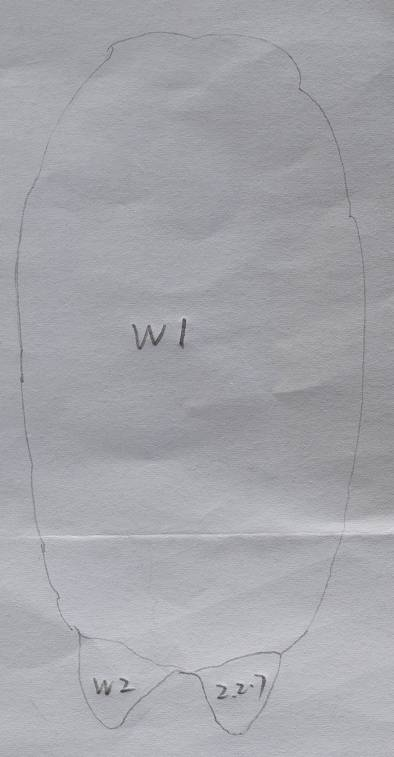 W1
W2
2.2.7